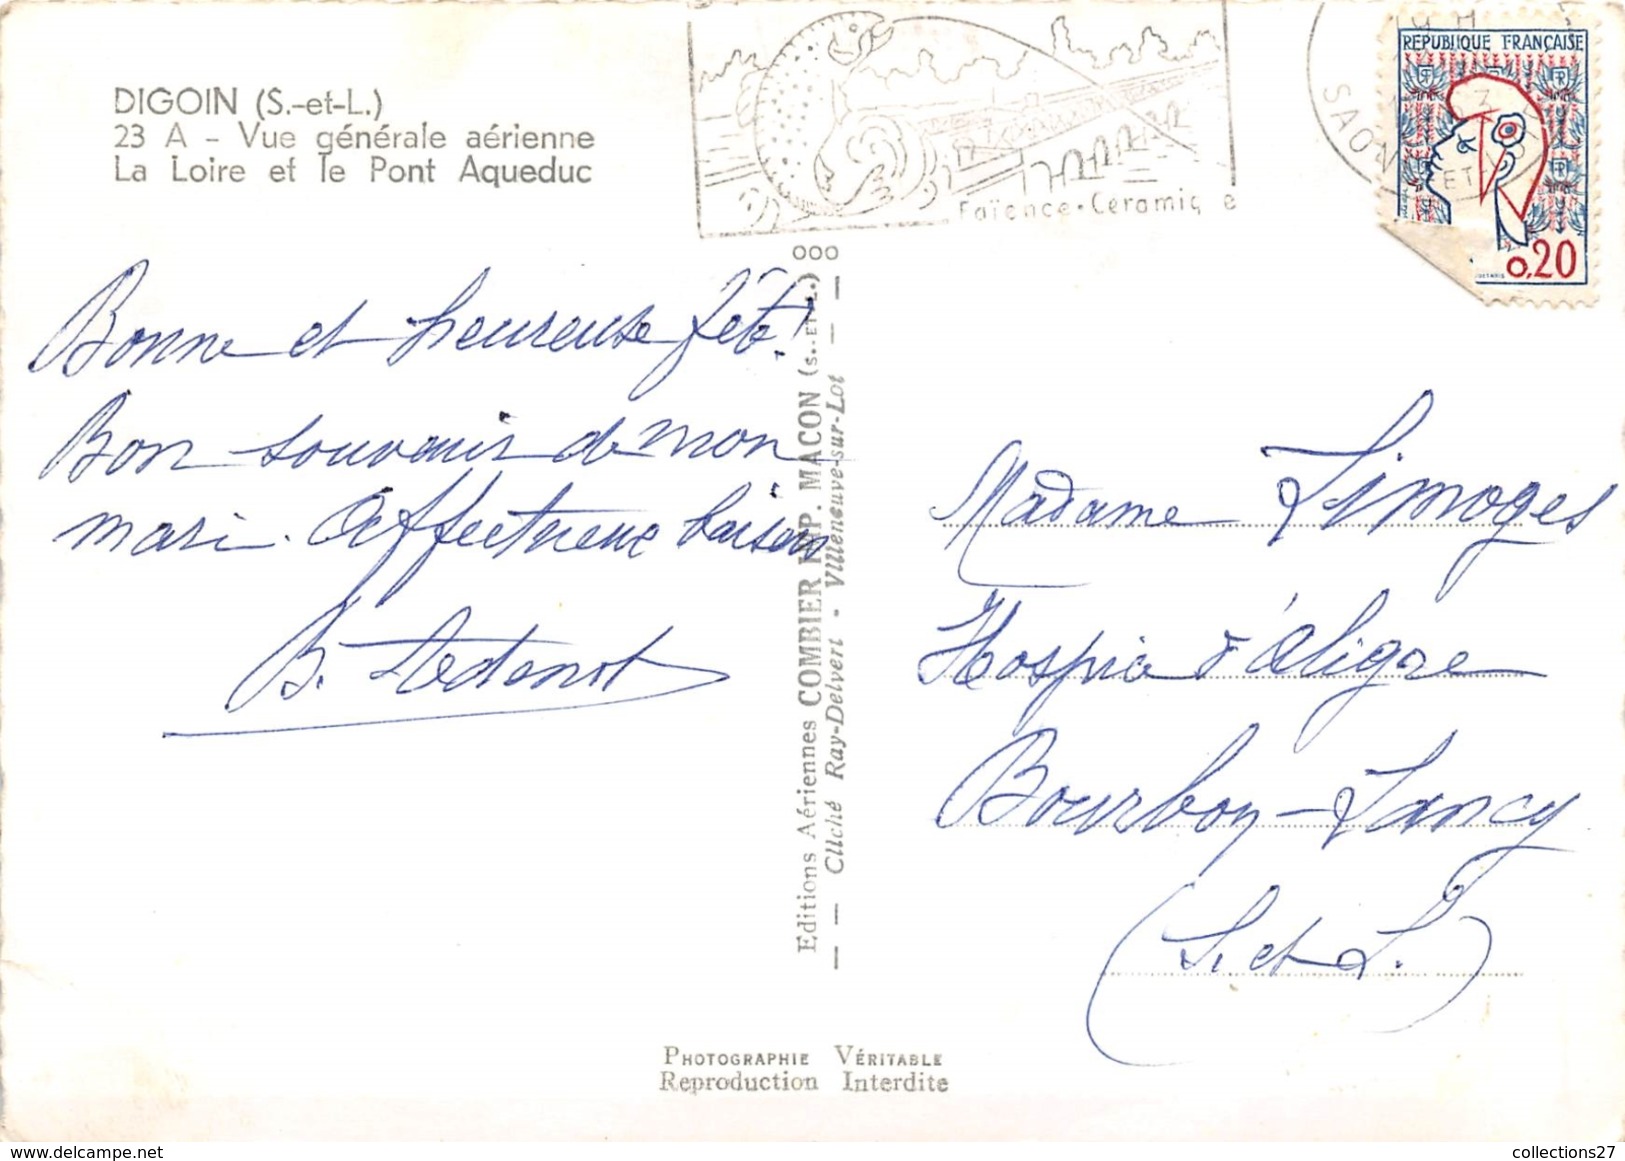 DIGOIN (S.-et-L.)
23 A - Vue générale aérienne
La Loire et le Pont Aqueduc
Faïence-Céramique
SAONE ET
REPUBLIQUE FRANÇAISE
0,20
Bonne et heureuse fête!
Bon souvenir de mon
mari. Affectueux baisers
Madame Limoges
Hospice d'Aligre
Bourbon-Lancy
(S. et L.)
Editions Aériennes COMBIER IMP. MACON (S.-ET-L.)
Cliché Ray-Delvert - Villeneuve-sur-Lot
PHOTOGRAPHIE VÉRITABLE
Reproduction Interdite
collections27